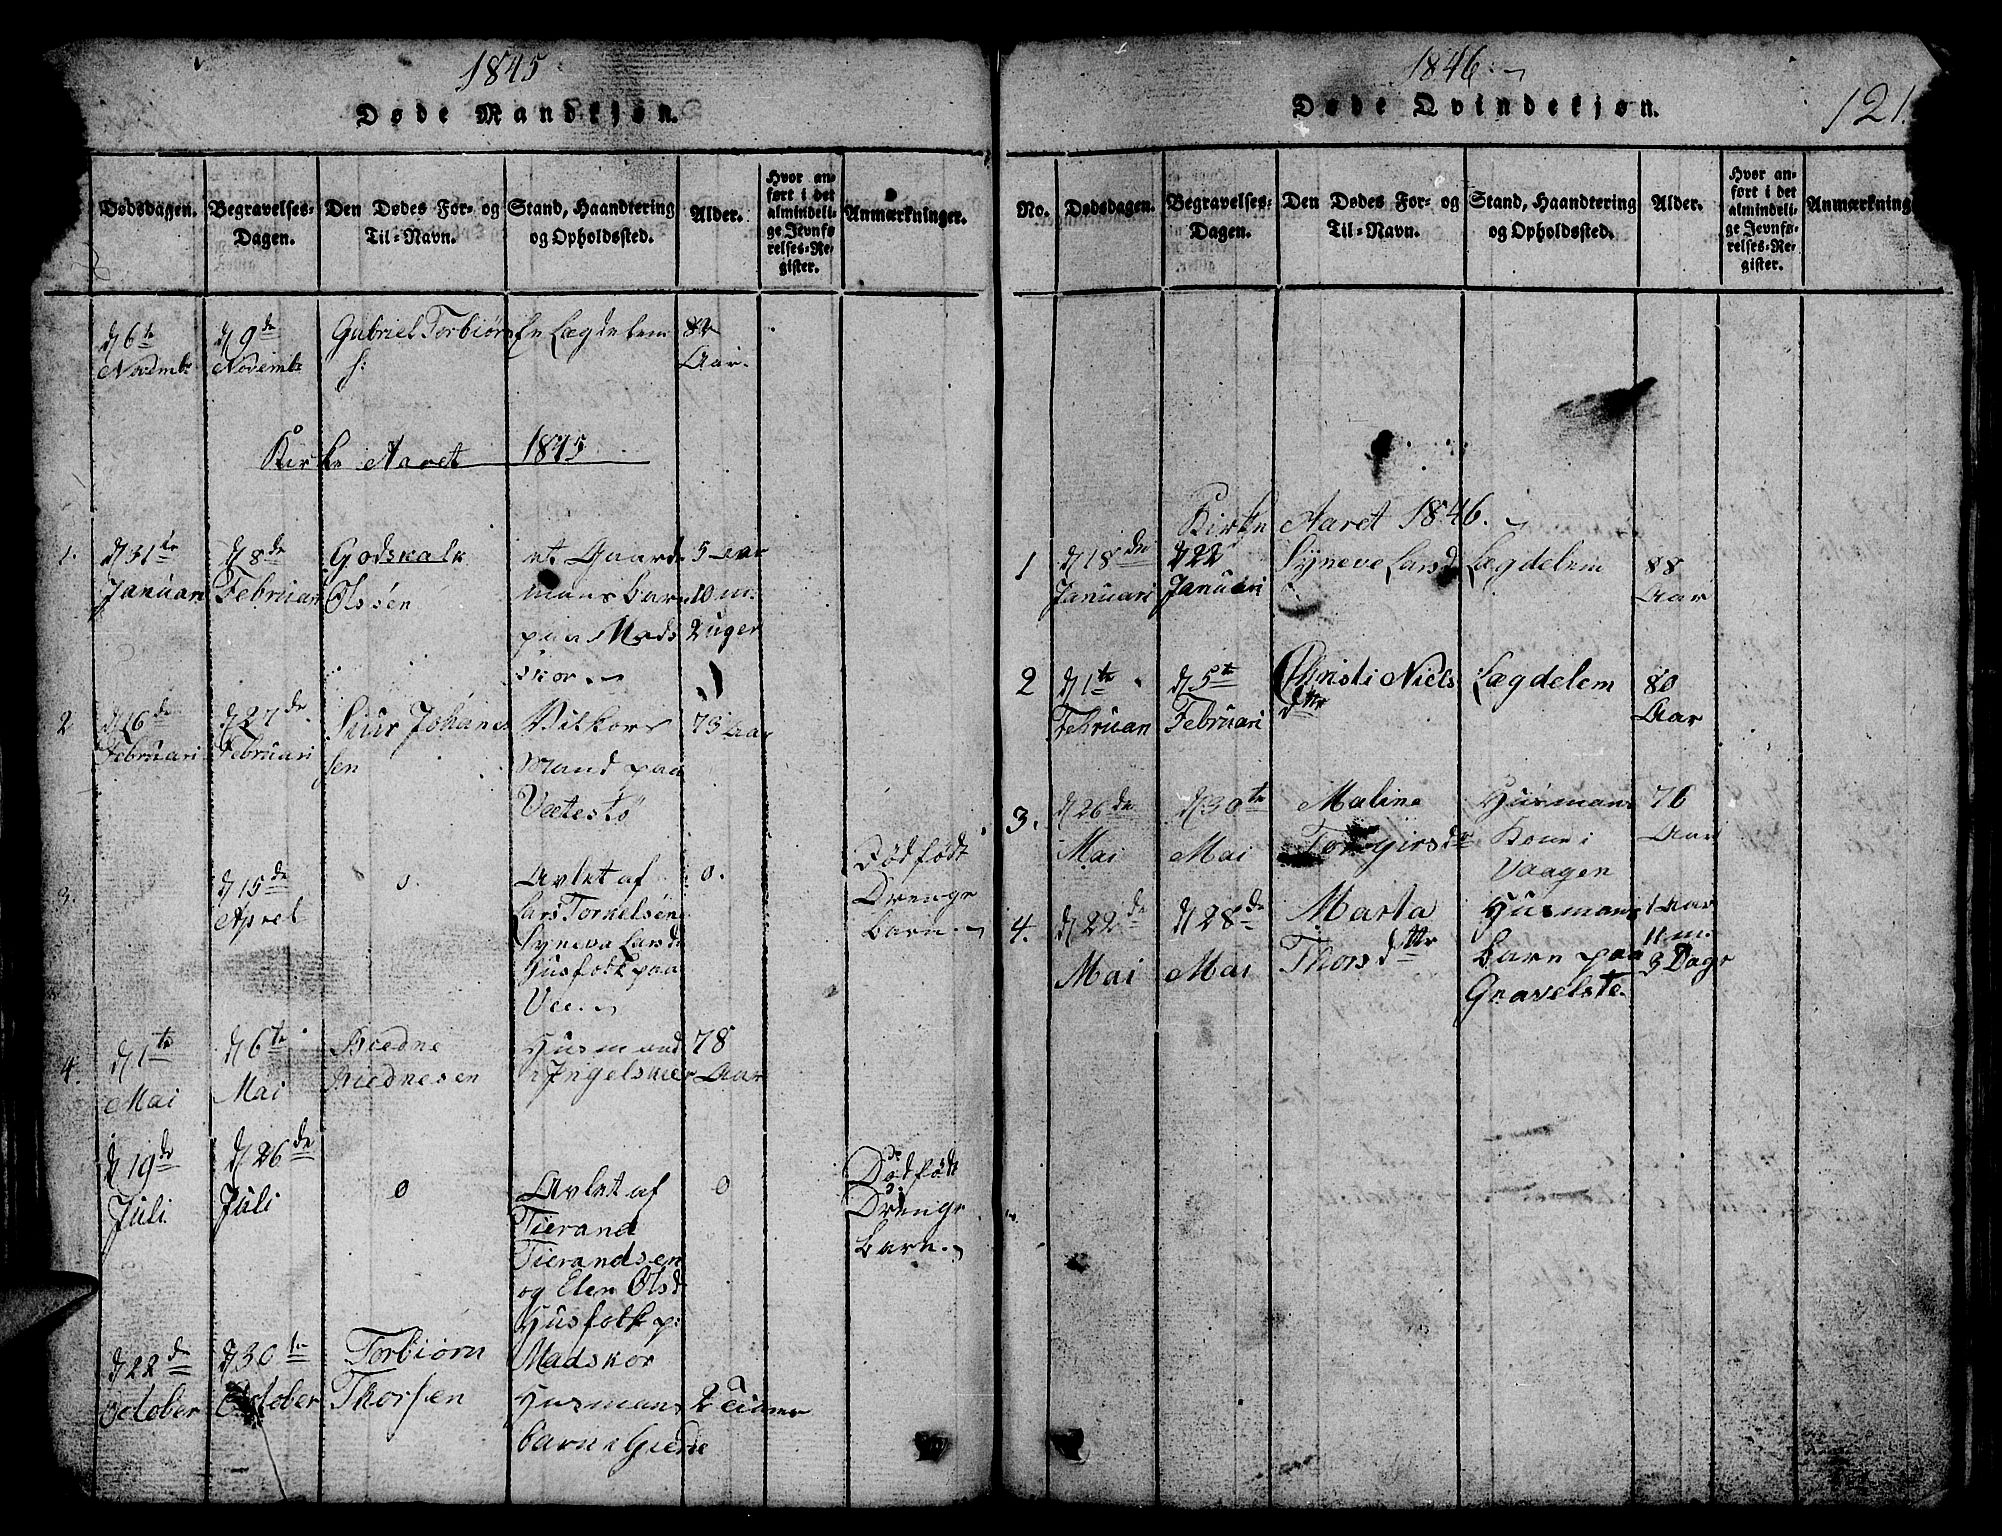 1845
Døde Mandkjøn.
Dødsdagen.
Begravelses-Dagen.
Den Dødes For- og Til-Navn.
Stand, Haandtering og Opholdssted.
Alder.
Hvor anført i det almindelige Jevnførelses-Register.
Anmærkninger.
d 6te Novembr
d 9de Novembr
Gabriel Torbiørns:
En Lægdelem
Aar.
Kirke Aaret 1845
1.
d 31te Januari
d 8de Februari
Godskalk Olssen
et Gaardmans barn paa Madskor.
5 10 m. 2 uger
2
d 16de Februari
d 27de Februari
Siur Johanessen
Vilkors Mand paa Vætestø
73 Aar
3.
d 15de Aprel
0.
Avlet af Lars Torkelsøn Syneva Larsd Husfolk paa Vee.
0.
Dødfødt Drenge barn.
4.
d 1te Mai
d 6te Mai
Husmand i Ingelskier
78 Aar
d 19de Juli
d 26de Juli
0
Avlet af Tierand Tierandsen og Elen Olsd Husfolk p: Madskor
0
Dødfødt Drenge barn.
d 22de October
d 30te October
Torbiørn Thorsen
Husmans barn i Gierde
2 Timer
1846.
121.
Døde Qvindekjøn.
No.
Dødsdagen.
Begravelses-Dagen.
Den Dødes For- og Til-Navn.
Stand, Haandtering og Opholdssted.
Alder.
Hvor anført i det almindelige Jevnførelses-Register.
Anmærkning
Kirke Aaret 1846.
1
d 18de Januari
d 22 Januari
Syneve Larsd
Lægdelem
88 Aar
2
d 1te Februari
d 5te Februari
Christi Niels dttr
Lægdelem
80 Aar
3.
d 26de Mai
d 30te Mai
Maline Torgiersdr
Husmans Kone i Vaagen
76 Aar
4.
d 22de Mai
d 28de Mai
Marta Thorsdttr
Husmans barn paa Gravelste.
1 Aar 11 m. 3 Dage